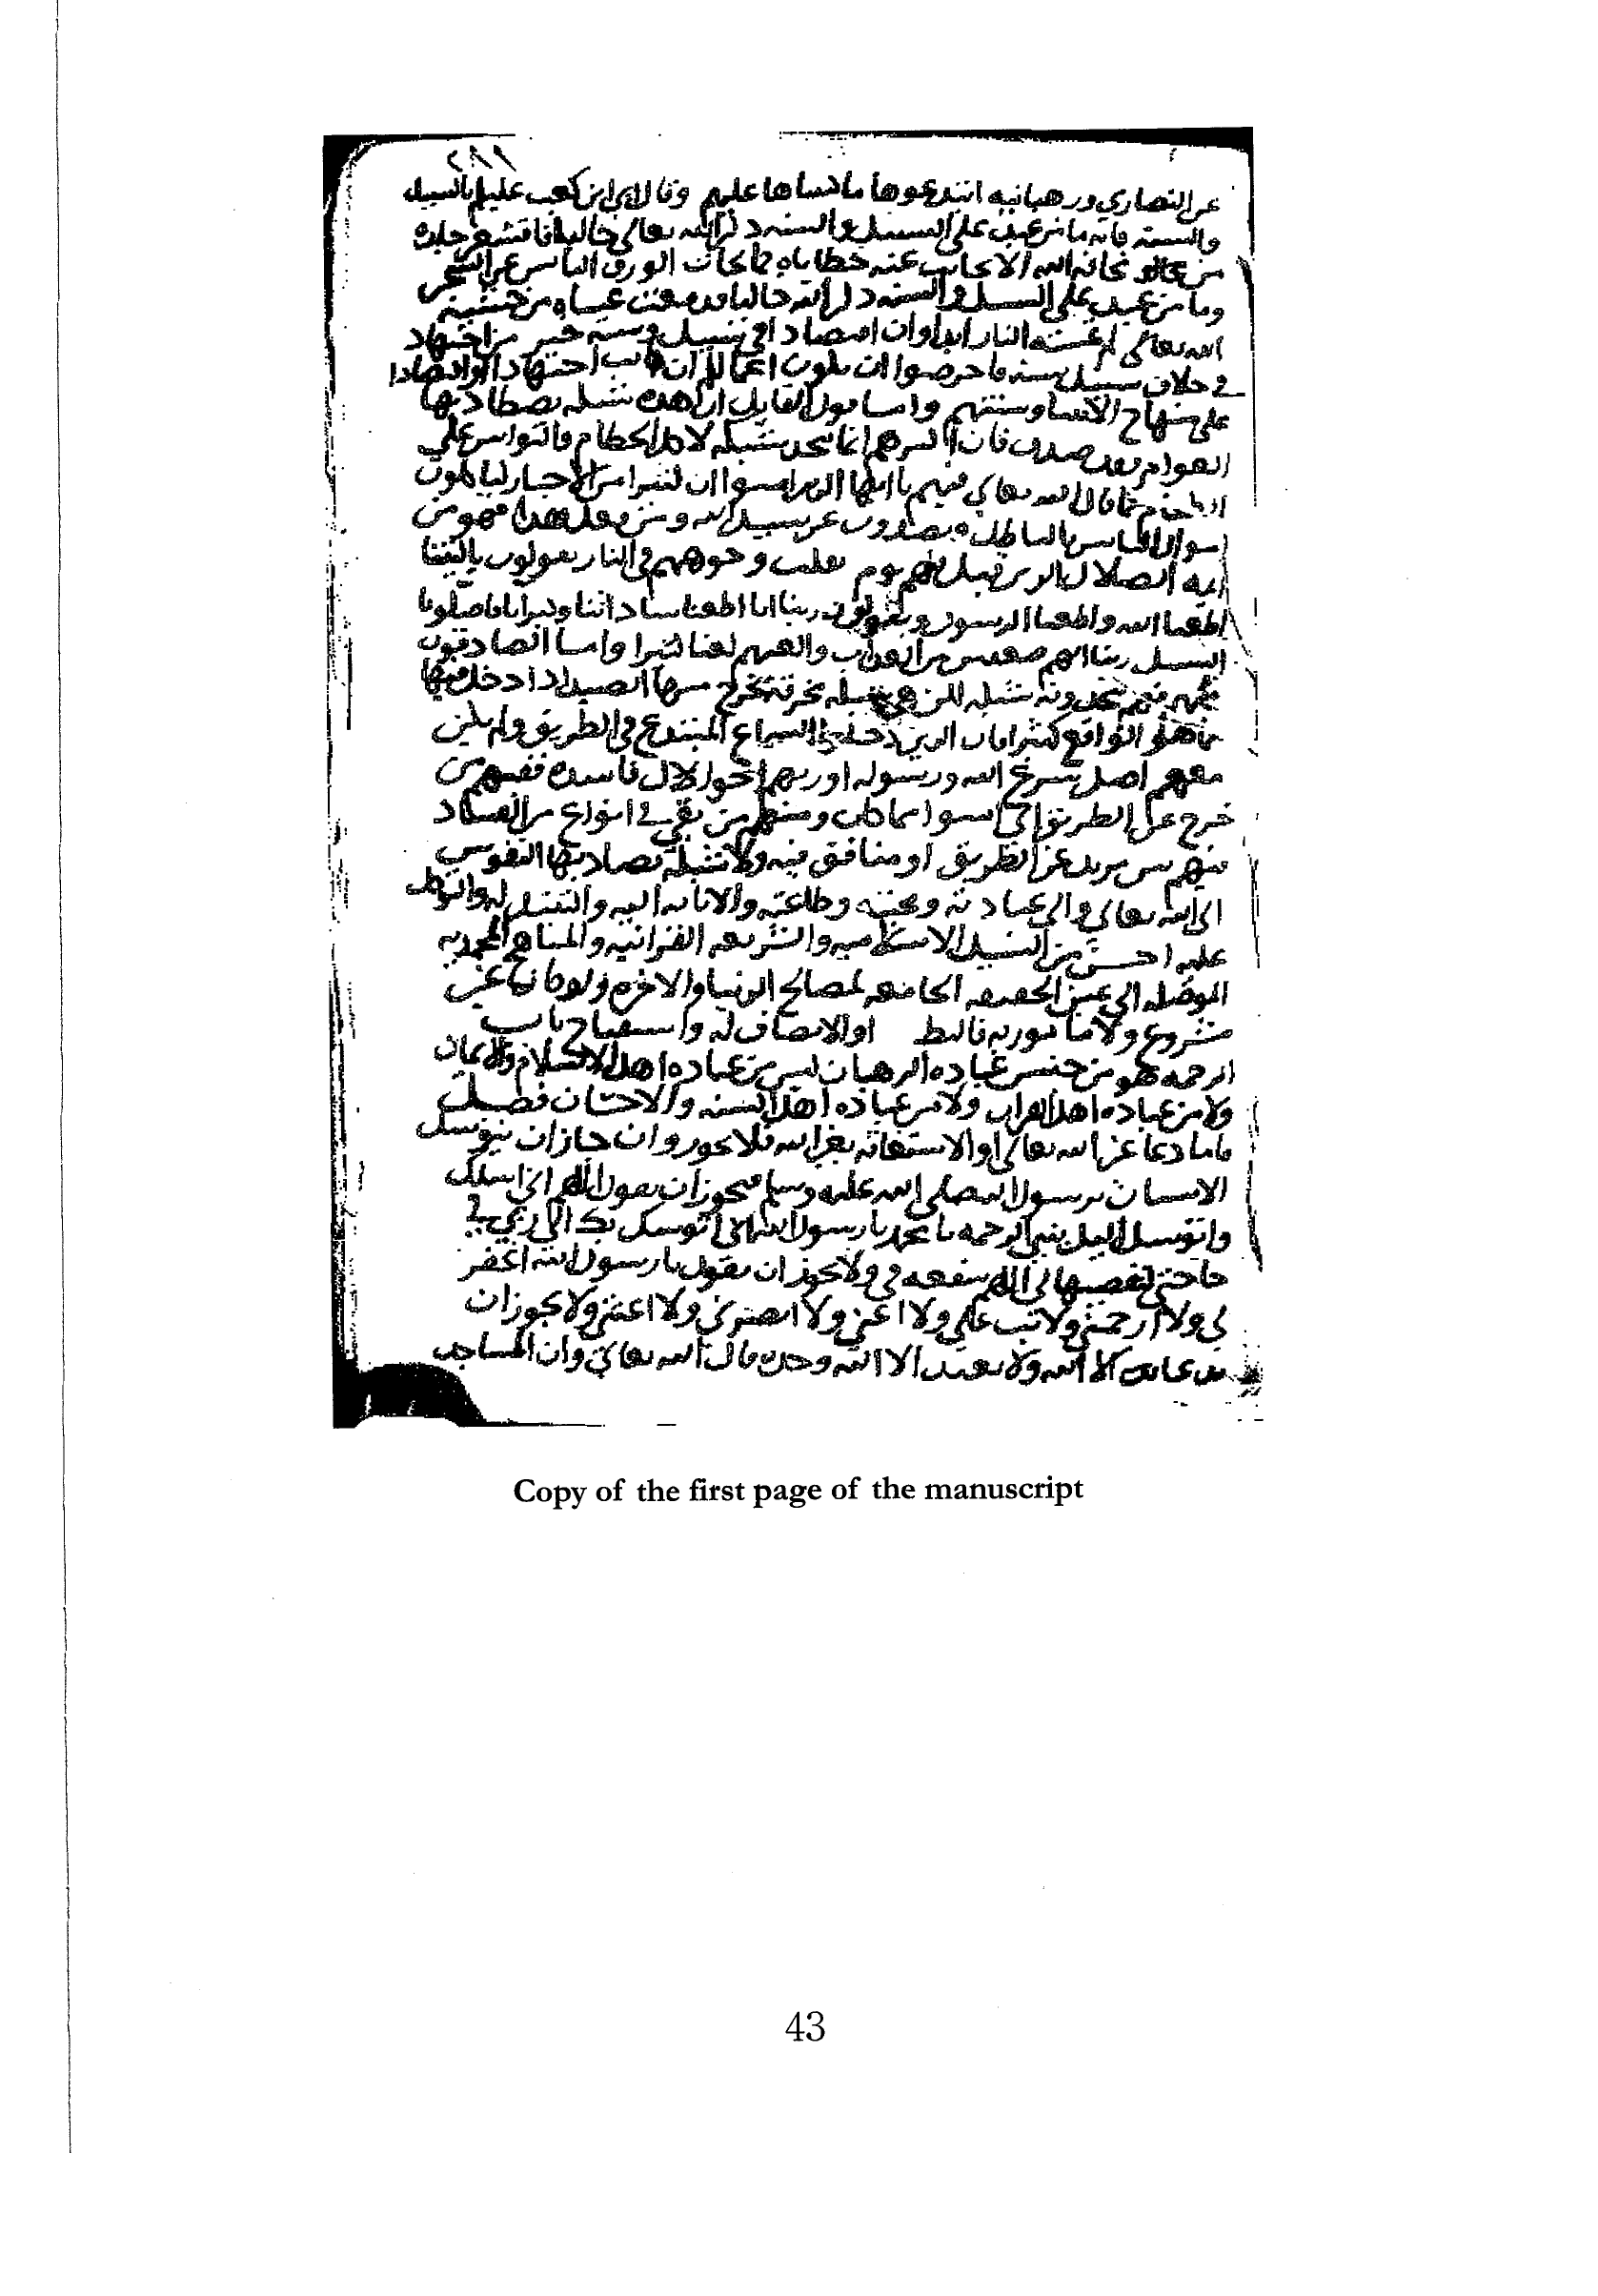 عن النصارى ورهبانيه ابتدعوها ما كتبناها عليهم وقال ابي ابن كعب عليكم بالسبيل
والسنه فانه ما من عبد على السبيل والسنه ذكر الله تعالى خاليا فاقشعر جلده
من مخافه الله الا تحاتت عنه خطاياه كما تحات الورق اليابس عن الشجر
وما من عبد على السبيل والسنه ذكر الله خاليا ففاضت عيناه من خشيه
الله تعالى لم تمسه النار ابدا وان اقتصادا في سبيل وسنه خير من اجتهاد
في خلاف سبيل وسنه فاحرصوا ان تكون اعمالكم ان كانت اجتهادا او اقتصادا
على منهاج الانبيا وسنتهم واما قول القايل ان هذه شبكه يصطاد بها
العوام فقد صدق فان اكثرهم انما يتخذ شبكه لاجل الحطام والتوانس على
الطعام كما قال الله تعالى فيهم يا ايها الذين امنوا ان كثيرا من الاحبار لياكلون
اموال الناس بالباطل ويصدون عن سبيل الله ومن فعل هذا فهو من
ايمه الضلال الذين قيل فيهم يوم تقلب وجوههم في النار يقولون يا ليتنا
اطعنا الله واطعنا الرسول ويقولون ربنا انا اطعنا سادتنا وكبرانا فاضلونا
السبيل ربنا اتهم ضعفين من العذاب والعنهم لعنا كثيرا واما الصادقون
منهم فهم يتخذونه شبكه لكن هي شبكه مخرقه يخرج منها الصيد اذا دخل فيها
كما هو الواقع كثيرا فان الذين دخلوا السماع المبتدع في الطريق ولم يكن
معهم اصل شرع الله ورسوله اورثهم احوالا فاسده فمنهم من
خرج عن الطريق الى اسوا مما كان ومنهم من بقي في انواع من الفساد
منهم من يريد عن الطريق او منافق فيه ولا شبكه تصاد بها النفوس
الى الله تعالى والى عبادته ومحبته وطاعته والانابه اليه والتبتل له والتوكل
عليه احسن من السبيل الاسلاميه والشريعه القرانيه والمناهج المحمديه
الموصله الى عين الحقيقه الجامعه لمصالح الدنيا والاخره ولو كانها غير
مشروع ولا مامور به فالتط او الانصاف له واستفتاح باب
الرحمه هو من جنس عباده الرهبان ليس من عباده اهل الاسلام والايمان
ولا من عباده اهل القران ولا من عباده اهل السنه والاحسان فصل
فاما دعا غير الله تعالى او الاستغاثه بغير الله فلا يجوز وان جاز ان يتوسل
الانسان برسول الله صلى الله عليه وسلم فيجوز ان يقول اللهم اني اسلك
واتوسل اليك بنبي الرحمه يا محمد يا رسول الله اني اتوسل بك الى ربي في
حاجتي لتقضيها لي اللهم شفعه في ولا يجوز ان يقول يا رسول الله اغفر
لي ولا ارحمني ولا تب علي ولا اعني ولا انصرني ولا اغثني ولا يجوز ان
الا الله ولا يعبد الا الله وحده قال الله تعالى وان المساجد
Copy of the first page of the manuscript
43